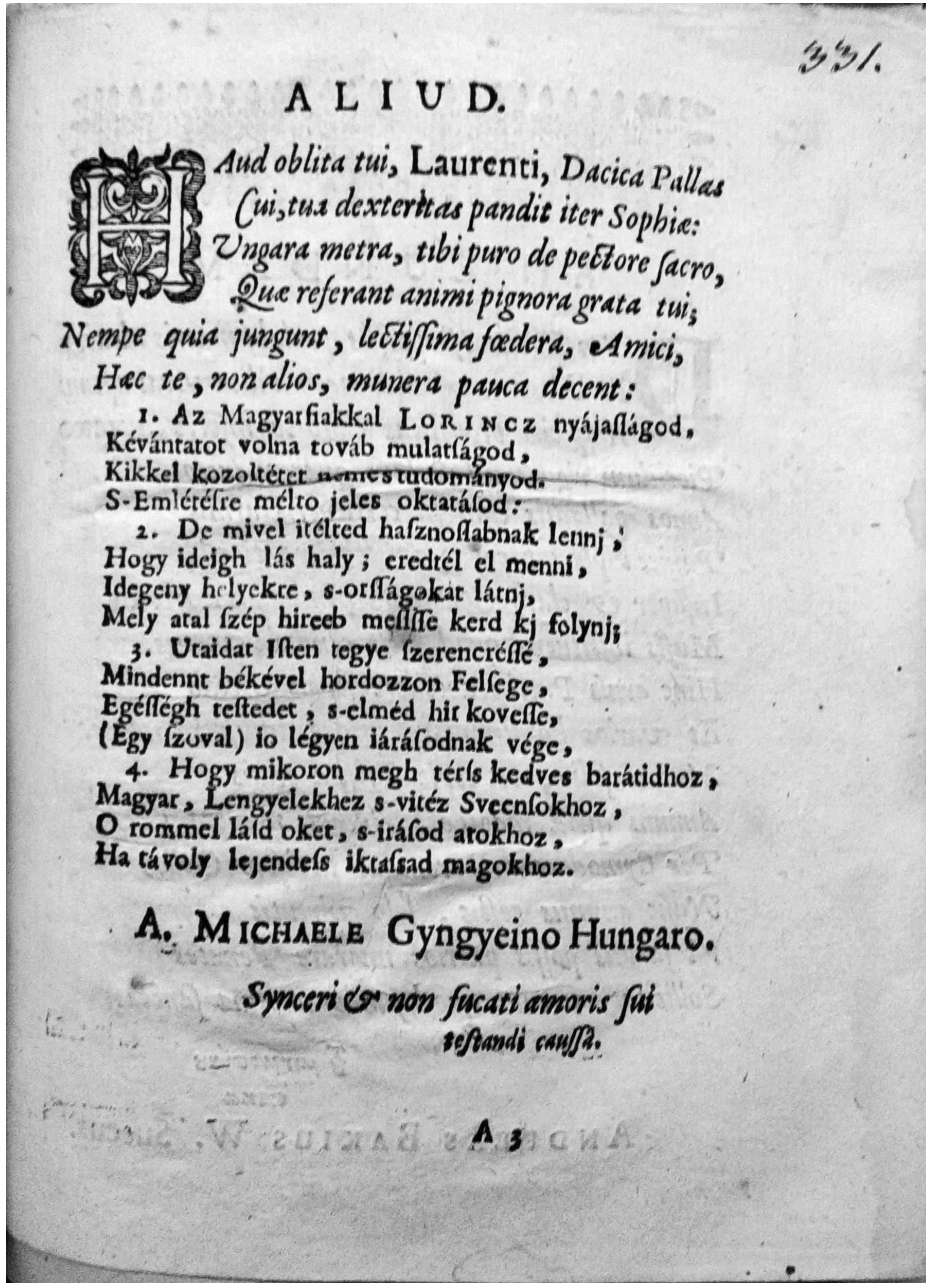 331.
ALIUD.
HAud oblita tui, Laurenti, Dacica Pallas
Cui, tua dexteritas pandit iter Sophiæ:
Ungara metra, tibi puro de pectore sacro,
Quæ referant animi pignora grata tui;
Nempe quia jungunt, lectiſſima fœdera, Amici,
Hæc te, non alios, munera pauca decent:
1. Az Magyarfiakkal LORINCZ nyájaſlágod,
Kévántatot volna továb mulatſágod,
Kikkel kozoltétet nemes tudományod.
S-Emlétéſre mélto jeles oktatáſod:
2. De mivel itélted haſznoſlabnak lennj,
Hogy ideigh lás haly; eredtél el menni,
Idegeny helyekre, s-orſſágokat látnj,
Mely atal ſzép hireeb meſſiſſe kerd kj folynj;
3. Utaidat Iſten tegye ſzerencréſſé,
Mindennt békével hordozzon Felſege,
Egéſſégh teſtedet, s-elméd hit koveſſe,
(Egy ſzoval) io légyen iáráſodnak vége,
4. Hogy mikoron megh téríſ kedves barátidhoz,
Magyar, Lengyelekhez s-vitéz Sveenſokhoz,
O rommel láſd oket, s-iráſod atokhoz,
Ha távoly lejendeſs iktaſsad magokhoz.
A. MICHAELE Gyngyeino Hungaro.
Synceri & non fucati amoris ſui
teſtandi cauſſâ.
A 3